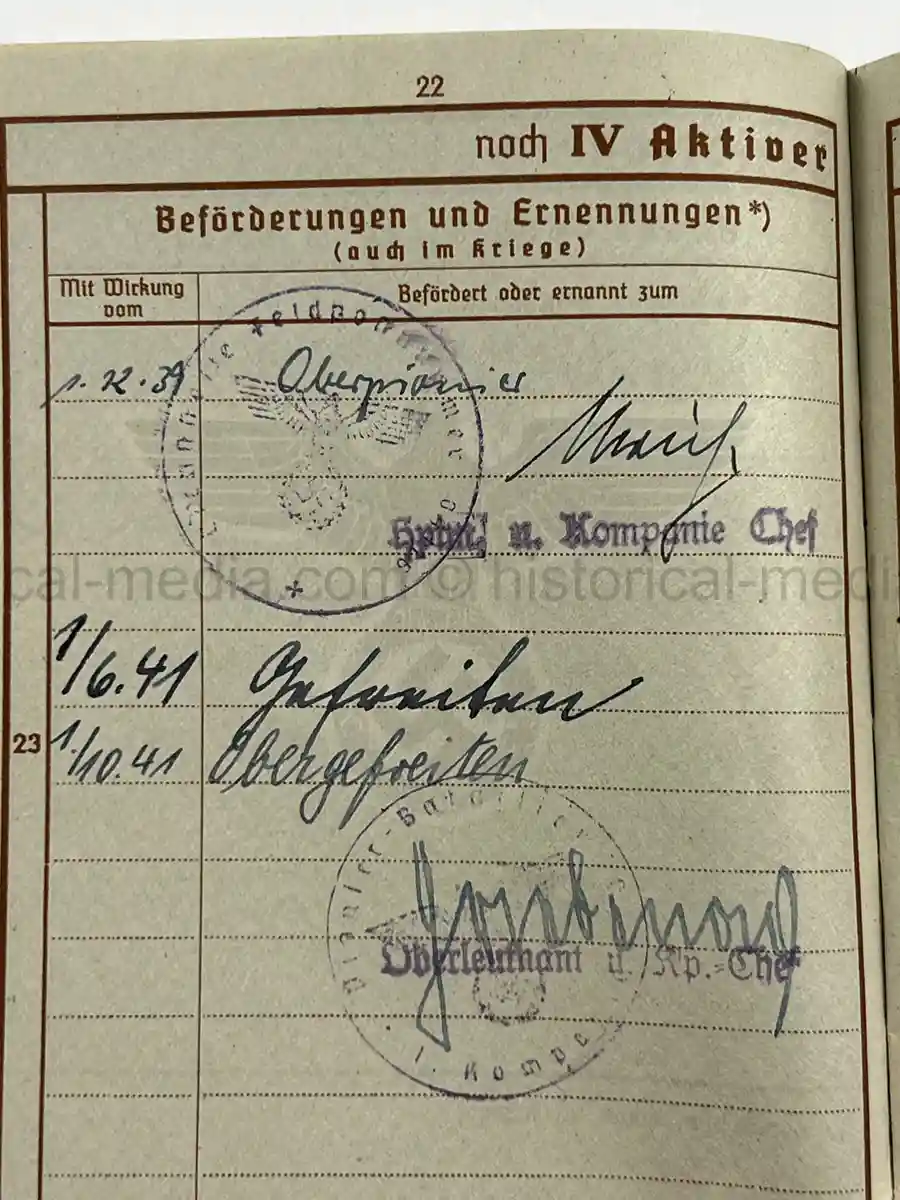 22
noch IV Aktiver
Beförderungen und Ernennungen*)
(auch im Kriege)
Mit Wirkung vom
Befördert oder ernannt zum
1. 12. 39 Oberpionier
Dienststelle Feldpostnummer
Hptm. u. Kompanie Chef
cal-media.com © historical-medi
1/6.41 Gefreiten
23
1./10.41 Obergefreiten
Pionier-Bataillon
Oberleutnant u. Kp.=Chef
1. Kompa